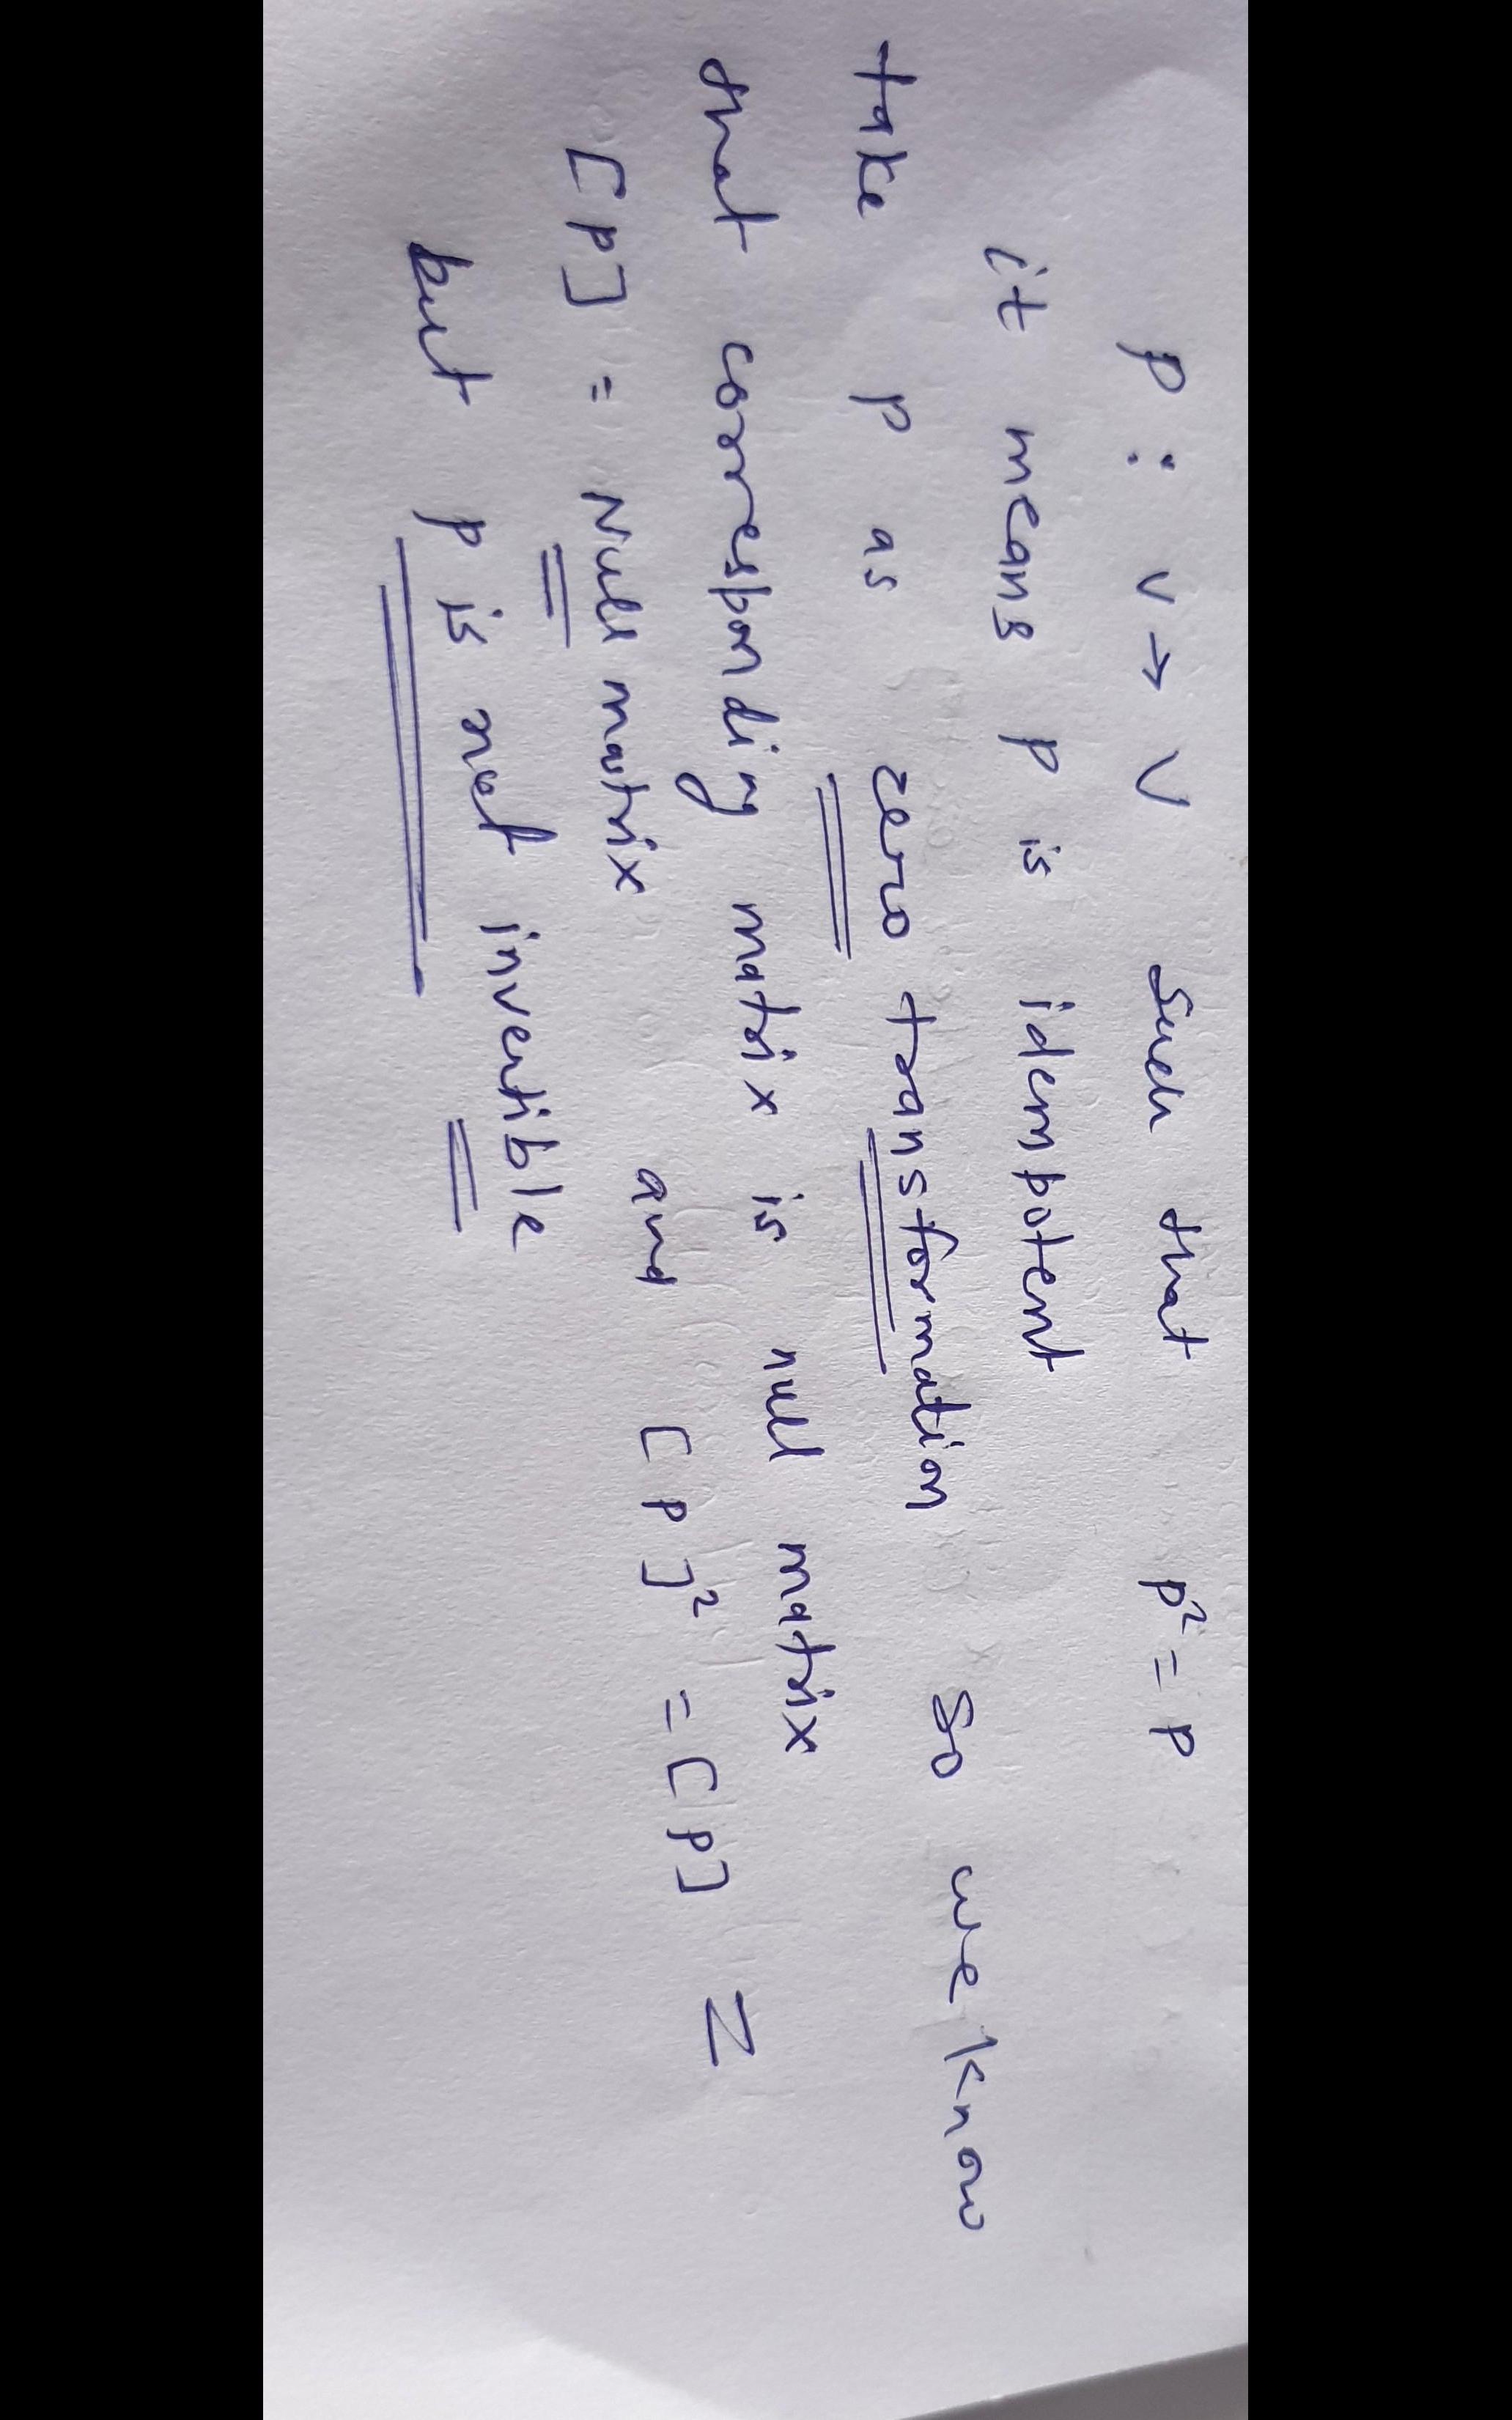 P : V → V Such that P² = P
it means P is idempotent
take P as zero transformation so we know
that corresponding matrix is null matrix
[P] = Null matrix and [P]² = [P]
but P is not invertible